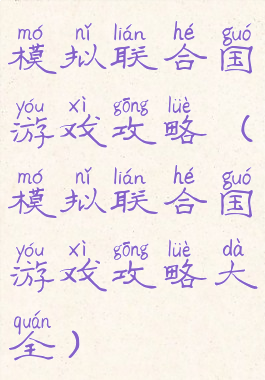 mó nǐ lián hé guó
模拟联合国
yóu xì gōng lüè
游戏攻略（
mó nǐ lián hé guó
模拟联合国
yóu xì gōng lüè dà
游戏攻略大
quán
全）